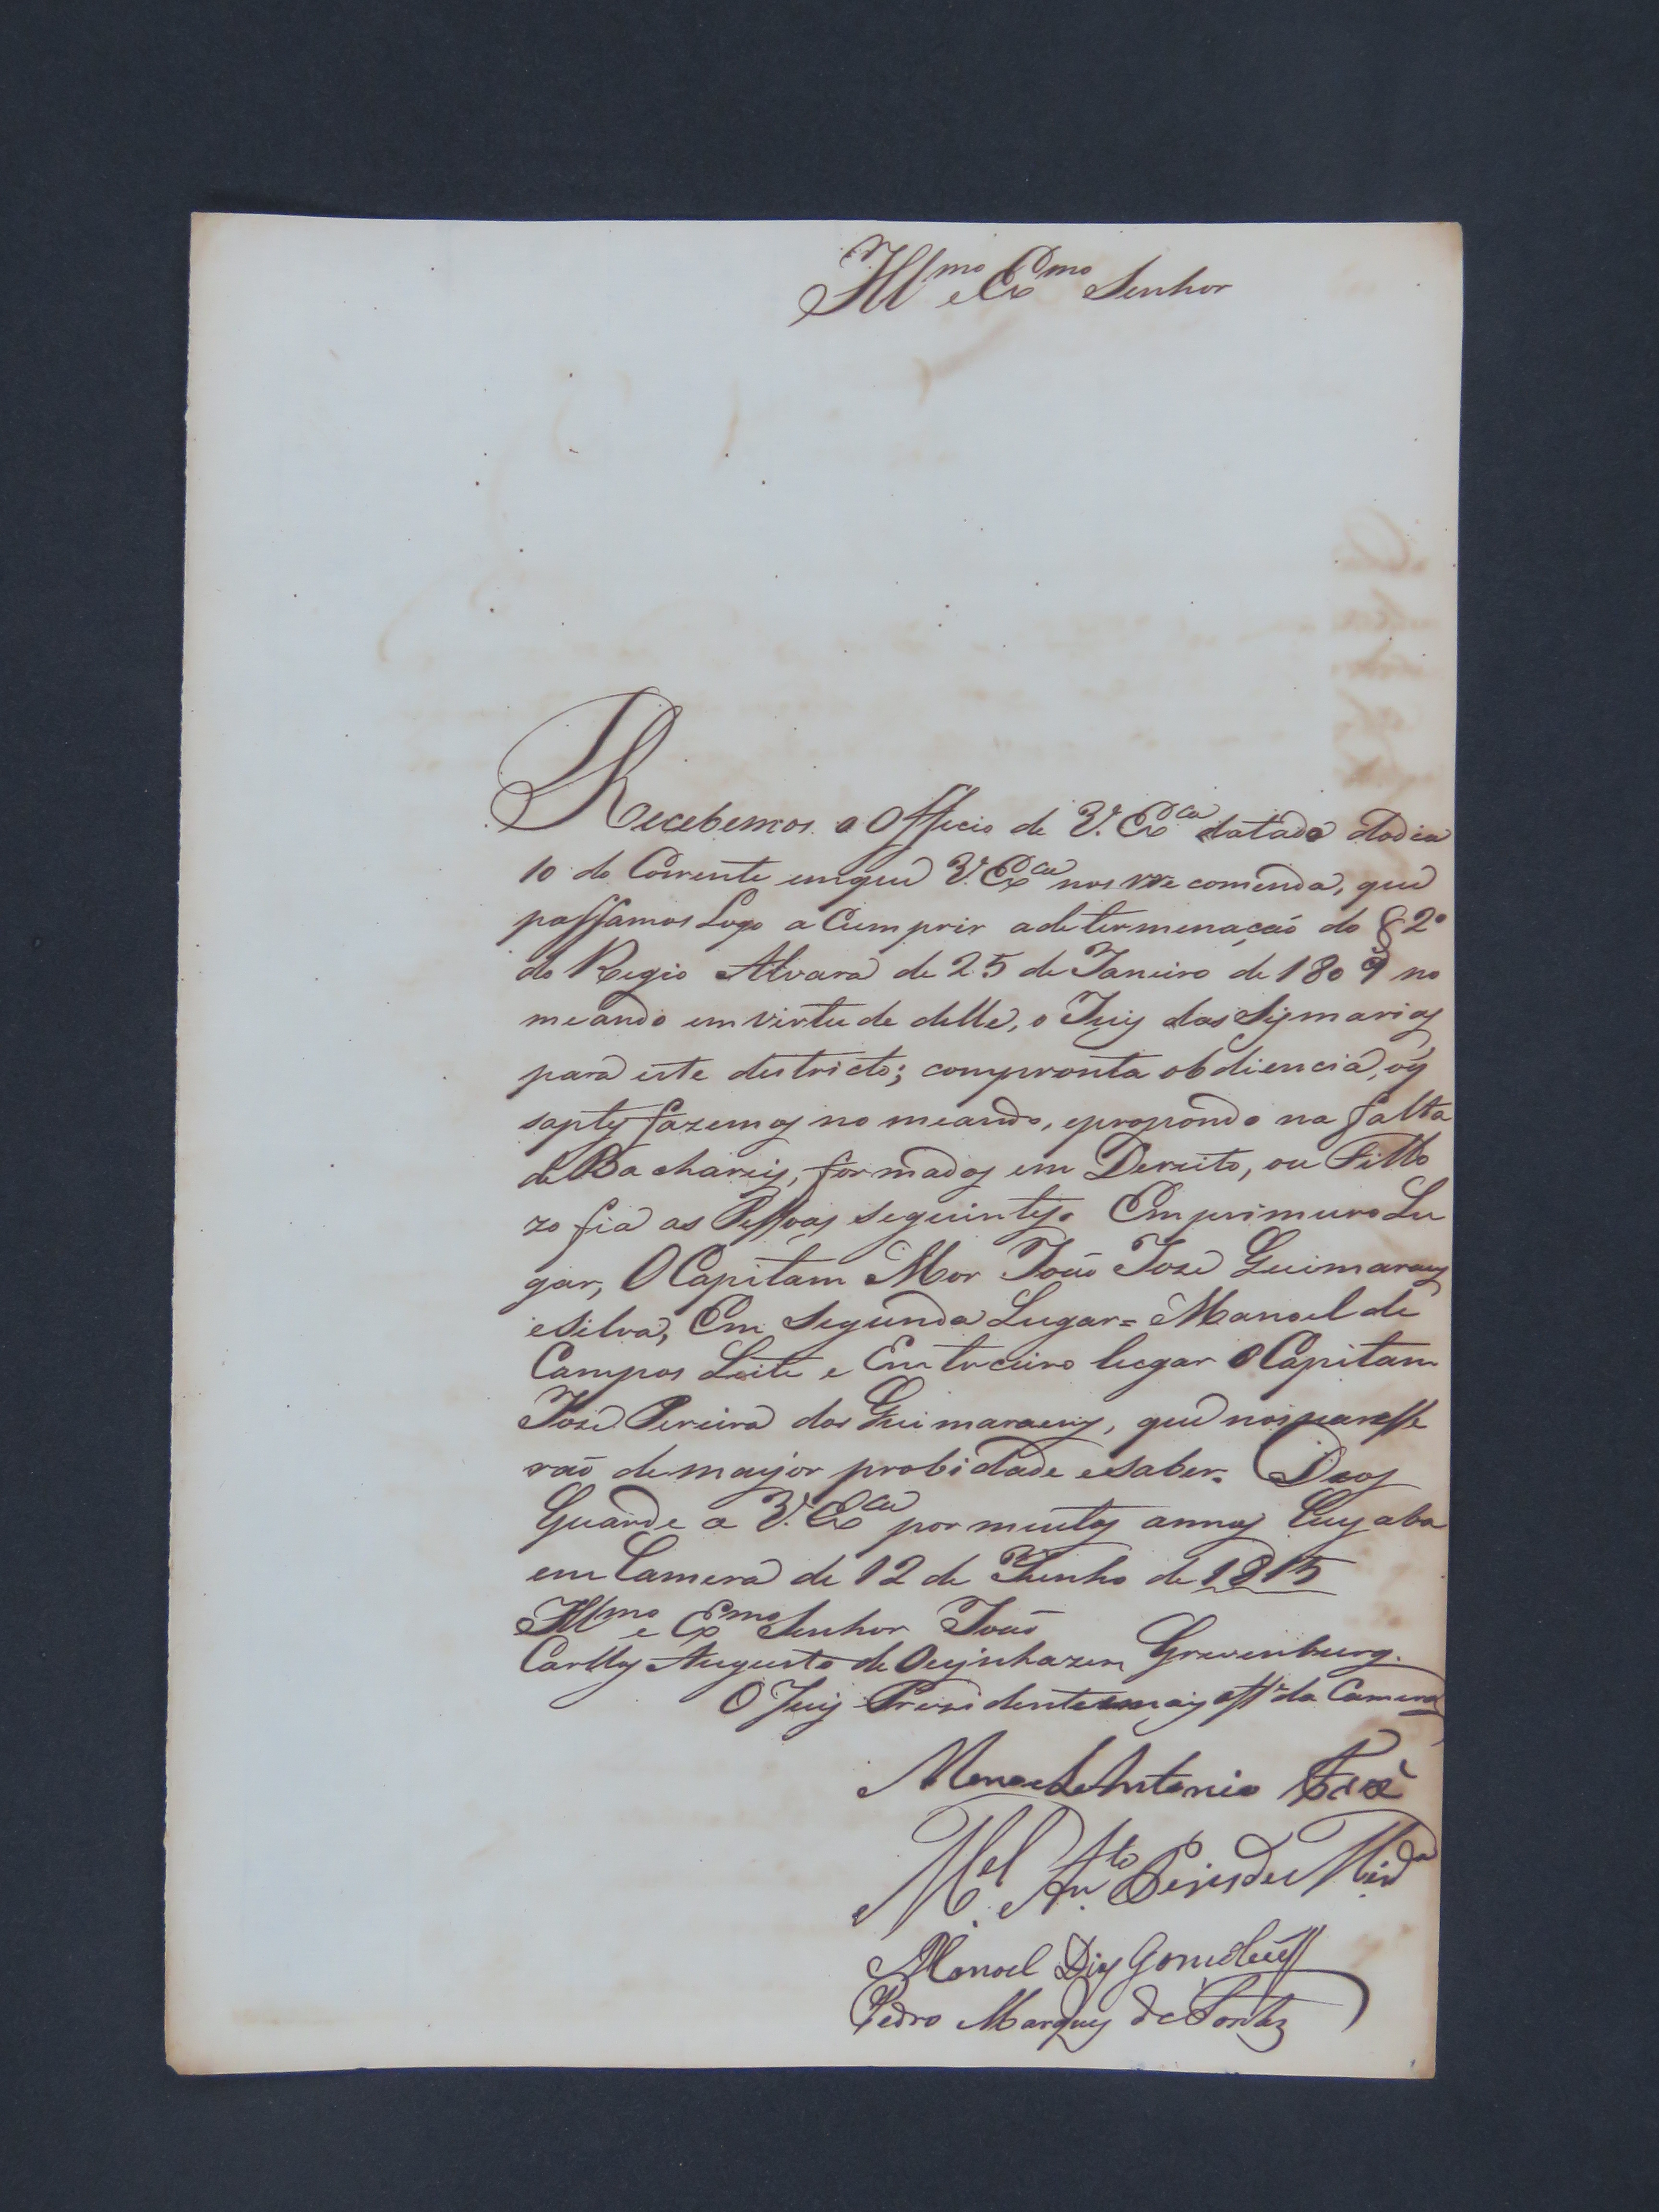 Illmo e Exmo Senhor
Recebemos o Officio de V. Exca datado do dia
10 do Corrente em que V. Exca nos rre comenda, que
passamos Logo a Cumprir a determenaçaõ do § 2º
do Regio Alvara de 25 de Janeiro de 1809 no
meando em virtude delle, o Juis das Sismarias
para este destricto; com pronta obdiencia, o
fazemos no meando, e propondo na falta
de Bachareis, formados em Dereito, ou Fillo
zo fia as Pessoas seguintes. Em primeiro Lu
gar, O Capitam Mor Joaõ Jozé Guimaraes
e Silva, Em Segundo Lugar = Manoel de
Campos Leite e Em terceiro lugar O Capitam
José Pereira dos Guimaraens, que nos paresse
raõ de mayor probidade e Saber. Deos
Guarde a V. Exca por muitos annos Cuyaba
em Camera de 12 de Junho de 1815
Illmo e Exmo Senhor Joaõ
Carllos Augusto de Oeynhazen Grevenburg.
O Juis Prezidente e mais offes da Camera
Manoel Antonio
Mel Anto Pires de Mirda
Manoel Dias
Pedro Marques de Fontes